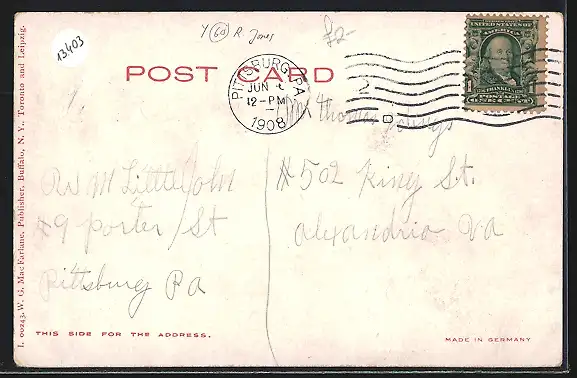 13403
Y 60 R. Jones
£2-
UNITED STATES OF AMERICA
1 FRANKLIN 1
POSTAGE
ONE CENT
POST CARD
PITTSBURG, PA
JUN
12-PM
1908
2
Mr Thomas
#502 King St.
Alexandria Va
M Little John
#9 porter St
Pittsburg Pa
THIS SIDE FOR THE ADDRESS.
MADE IN GERMANY
I. 00243. W. G. MacFarlane, Publisher, Buffalo, N. Y., Toronto and Leipzig.